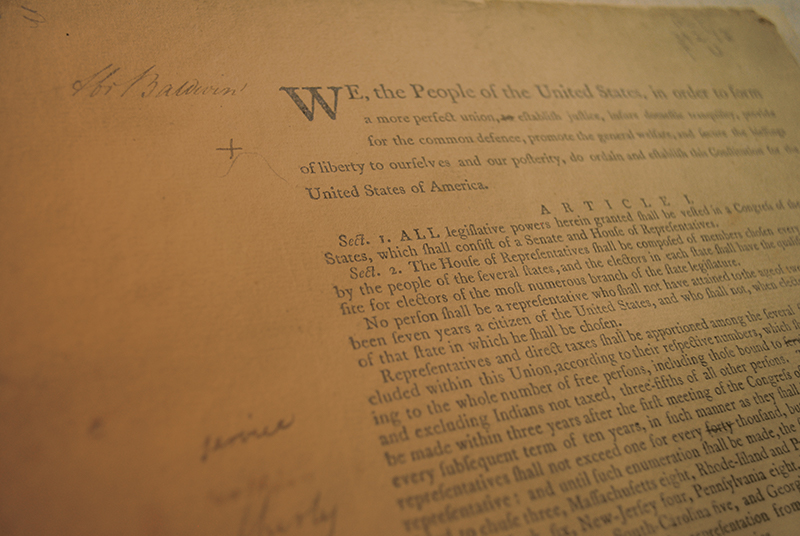 Abr Baldwin
WE, the People of the United States, in order to form
a more perfect union, to eſtabliſh juſtice, inſure domeſtic tranquility, provide
for the common defence, promote the general welfare, and ſecure the bleſſings
of liberty to ourſelves and our poſterity, do ordain and eſtabliſh this Conſtitution for the
United States of America.
ARTICLE I.
Sect. 1. ALL legiſlative powers herein granted ſhall be veſted in a Congreſs of the
States, which ſhall conſiſt of a Senate and Houſe of Repreſentatives.
Sect. 2. The Houſe of Repreſentatives ſhall be compoſed of members choſen every
by the people of the ſeveral ſtates, and the electors in each ſtate ſhall have the qualifi
ſite for electors of the moſt numerous branch of the ſtate legiſlature.
No perſon ſhall be a repreſentative who ſhall not have attained to the age of twe
been ſeven years a citizen of the United States, and who ſhall not, when elected
of that ſtate in which he ſhall be choſen.
Repreſentatives and direct taxes ſhall be apportioned among the ſeveral
cluded within this Union, according to their reſpective numbers, which
ing to the whole number of free perſons, including thoſe bound to
and excluding Indians not taxed, three-fifths of all other perſons.
be made within three years after the firſt meeting of the Congreſs of
every ſubſequent term of ten years, in ſuch manner as they ſhall
repreſentatives ſhall not exceed one for every forty thouſand, bu
repreſentative: and until ſuch enumeration ſhall be made, the
to chuſe three, Maſſachuſetts eight, Rhode-Iſland and P
ſix, New-Jerſey four, Pennſylvania eight,
South-Carolina five, and Georg
repreſentation from
service